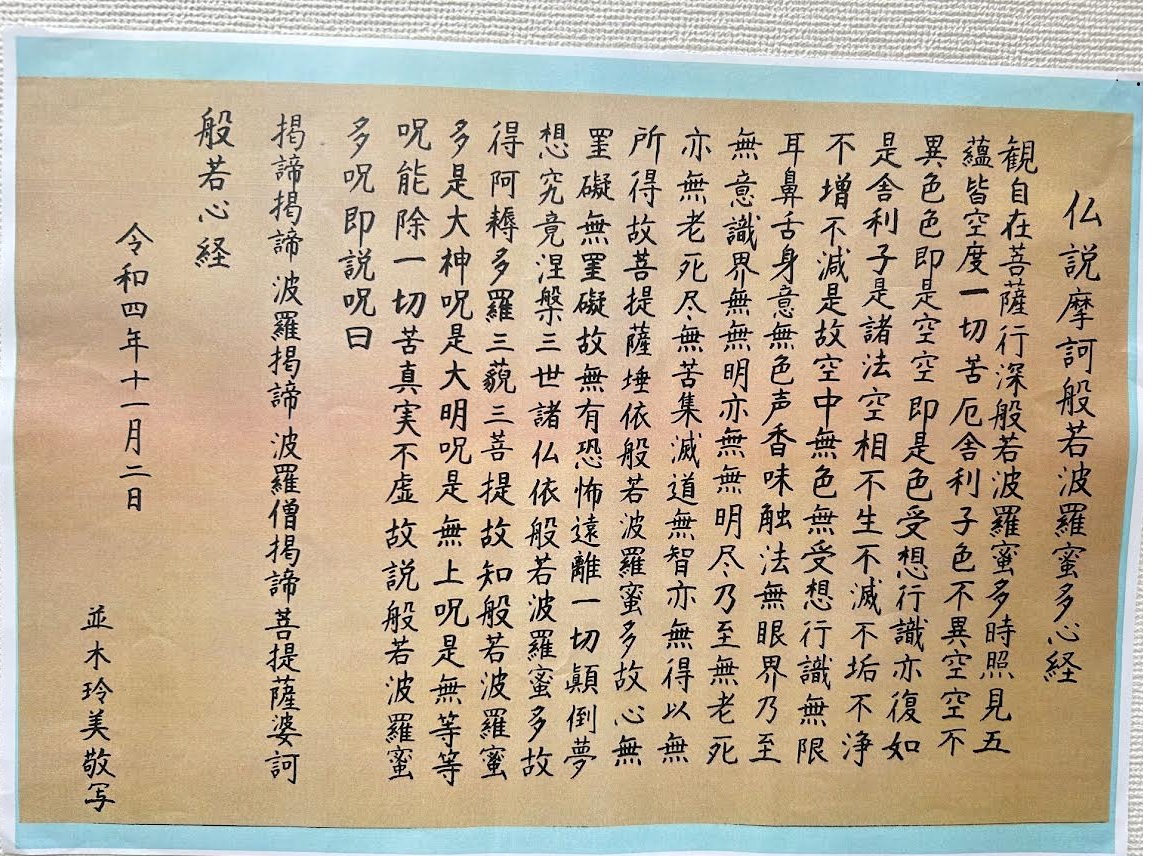 仏説摩訶般若波羅蜜多心経
観自在菩薩行深般若波羅蜜多時照見五
蘊皆空度一切苦厄舎利子色不異空空不
異色色即是空空即是色受想行識亦復如
是舎利子是諸法空相不生不滅不垢不浄
不増不減是故空中無色無受想行識無限
耳鼻舌身意無色声香味触法無眼界乃至
無意識界無無明亦無無明尽乃至無老死
亦無老死尽無苦集滅道無智亦無得以無
所得故菩提薩埵依般若波羅蜜多故心無
罣礙無罣礙故無有恐怖遠離一切顛倒夢
想究竟涅槃三世諸仏依般若波羅蜜多故
得阿耨多羅三藐三菩提故知般若波羅蜜
多是大神呪是大明呪是無上呪是無等等
呪能除一切苦真実不虚故説般若波羅蜜
多呪即説呪曰
掲諦掲諦波羅掲諦波羅僧掲諦菩提薩婆訶
般若心経
令和四年十一月二日
並木玲美敬写